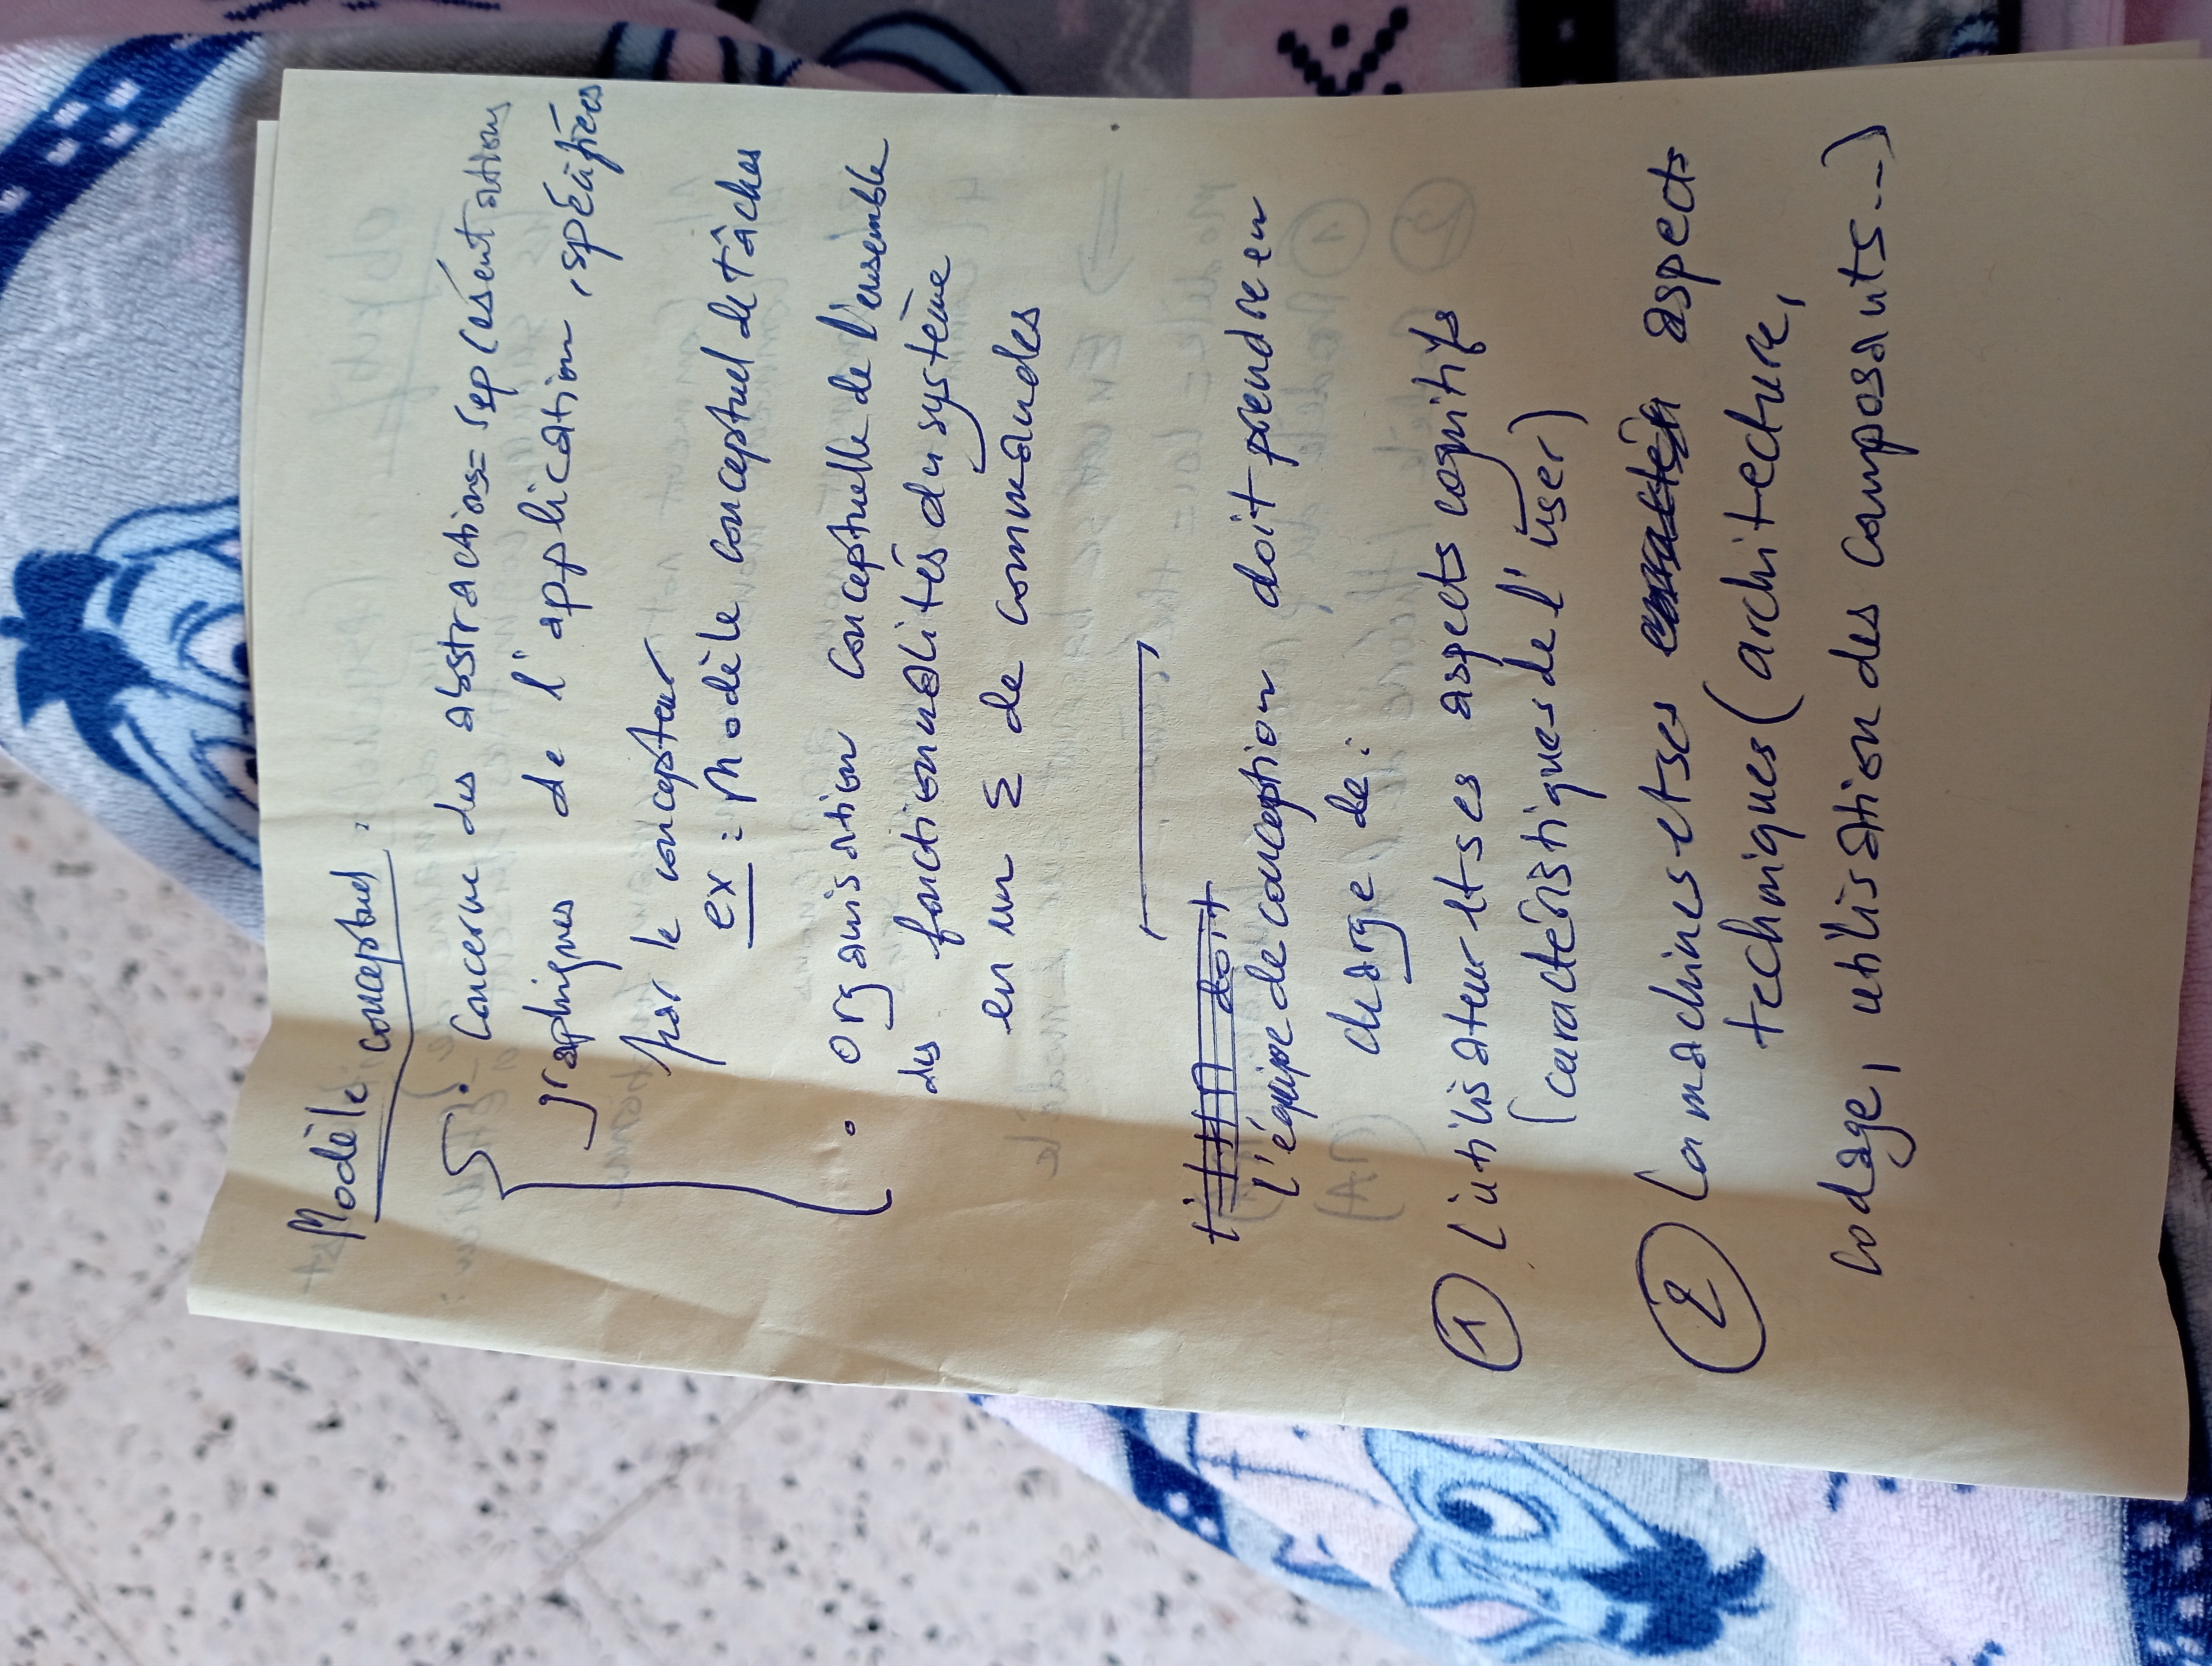 Modèle conceptuel :
• Concerne des abstractions = représentations
graphiques de l'application, spécifiées
par le concepteur
ex : Modèle conceptuel de tâches
• Organisation conceptuelle de l'ensemble
des fonctionnalités du système
en un Σ de commandes
l'IHM doit
l'équipe de conception doit prendre en
charge de :
① l'utilisateur et ses aspects cognitifs
(caractéristiques de l'user)
② la machines et ses aspects
techniques (architecture,
codage, utilisation des composants...)